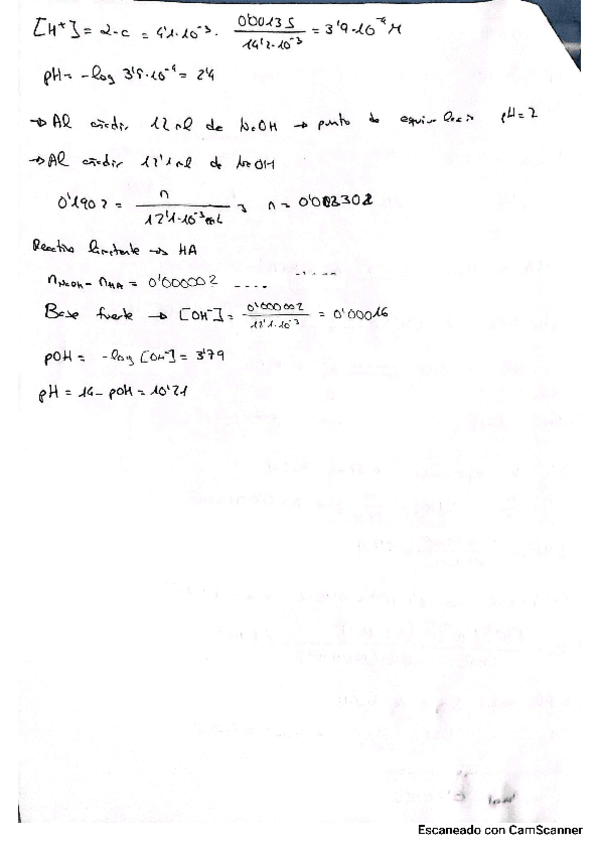 [H⁺] = α·c = 4'1·10⁻³ · 0'00135 / 14'2·10⁻³ = 3'9·10⁻⁴ M
pH = -log 3'9·10⁻⁴ = 2'4
→ Al añadir 12 ml de NaOH → punto de equivalencia pH = 7
→ Al añadir 12'1 ml de NaOH
0'1902 = n / 12'1·10⁻³ L ; n = 0'002302
Reactivo limitante → HA
nNaOH - nHA = 0'000002 ....
Base fuerte → [OH⁻] = 0'000002 / 12'1·10⁻³ = 0'00016
pOH = -log [OH⁻] = 3'79
pH = 14 - pOH = 10'21
Escaneado con CamScanner